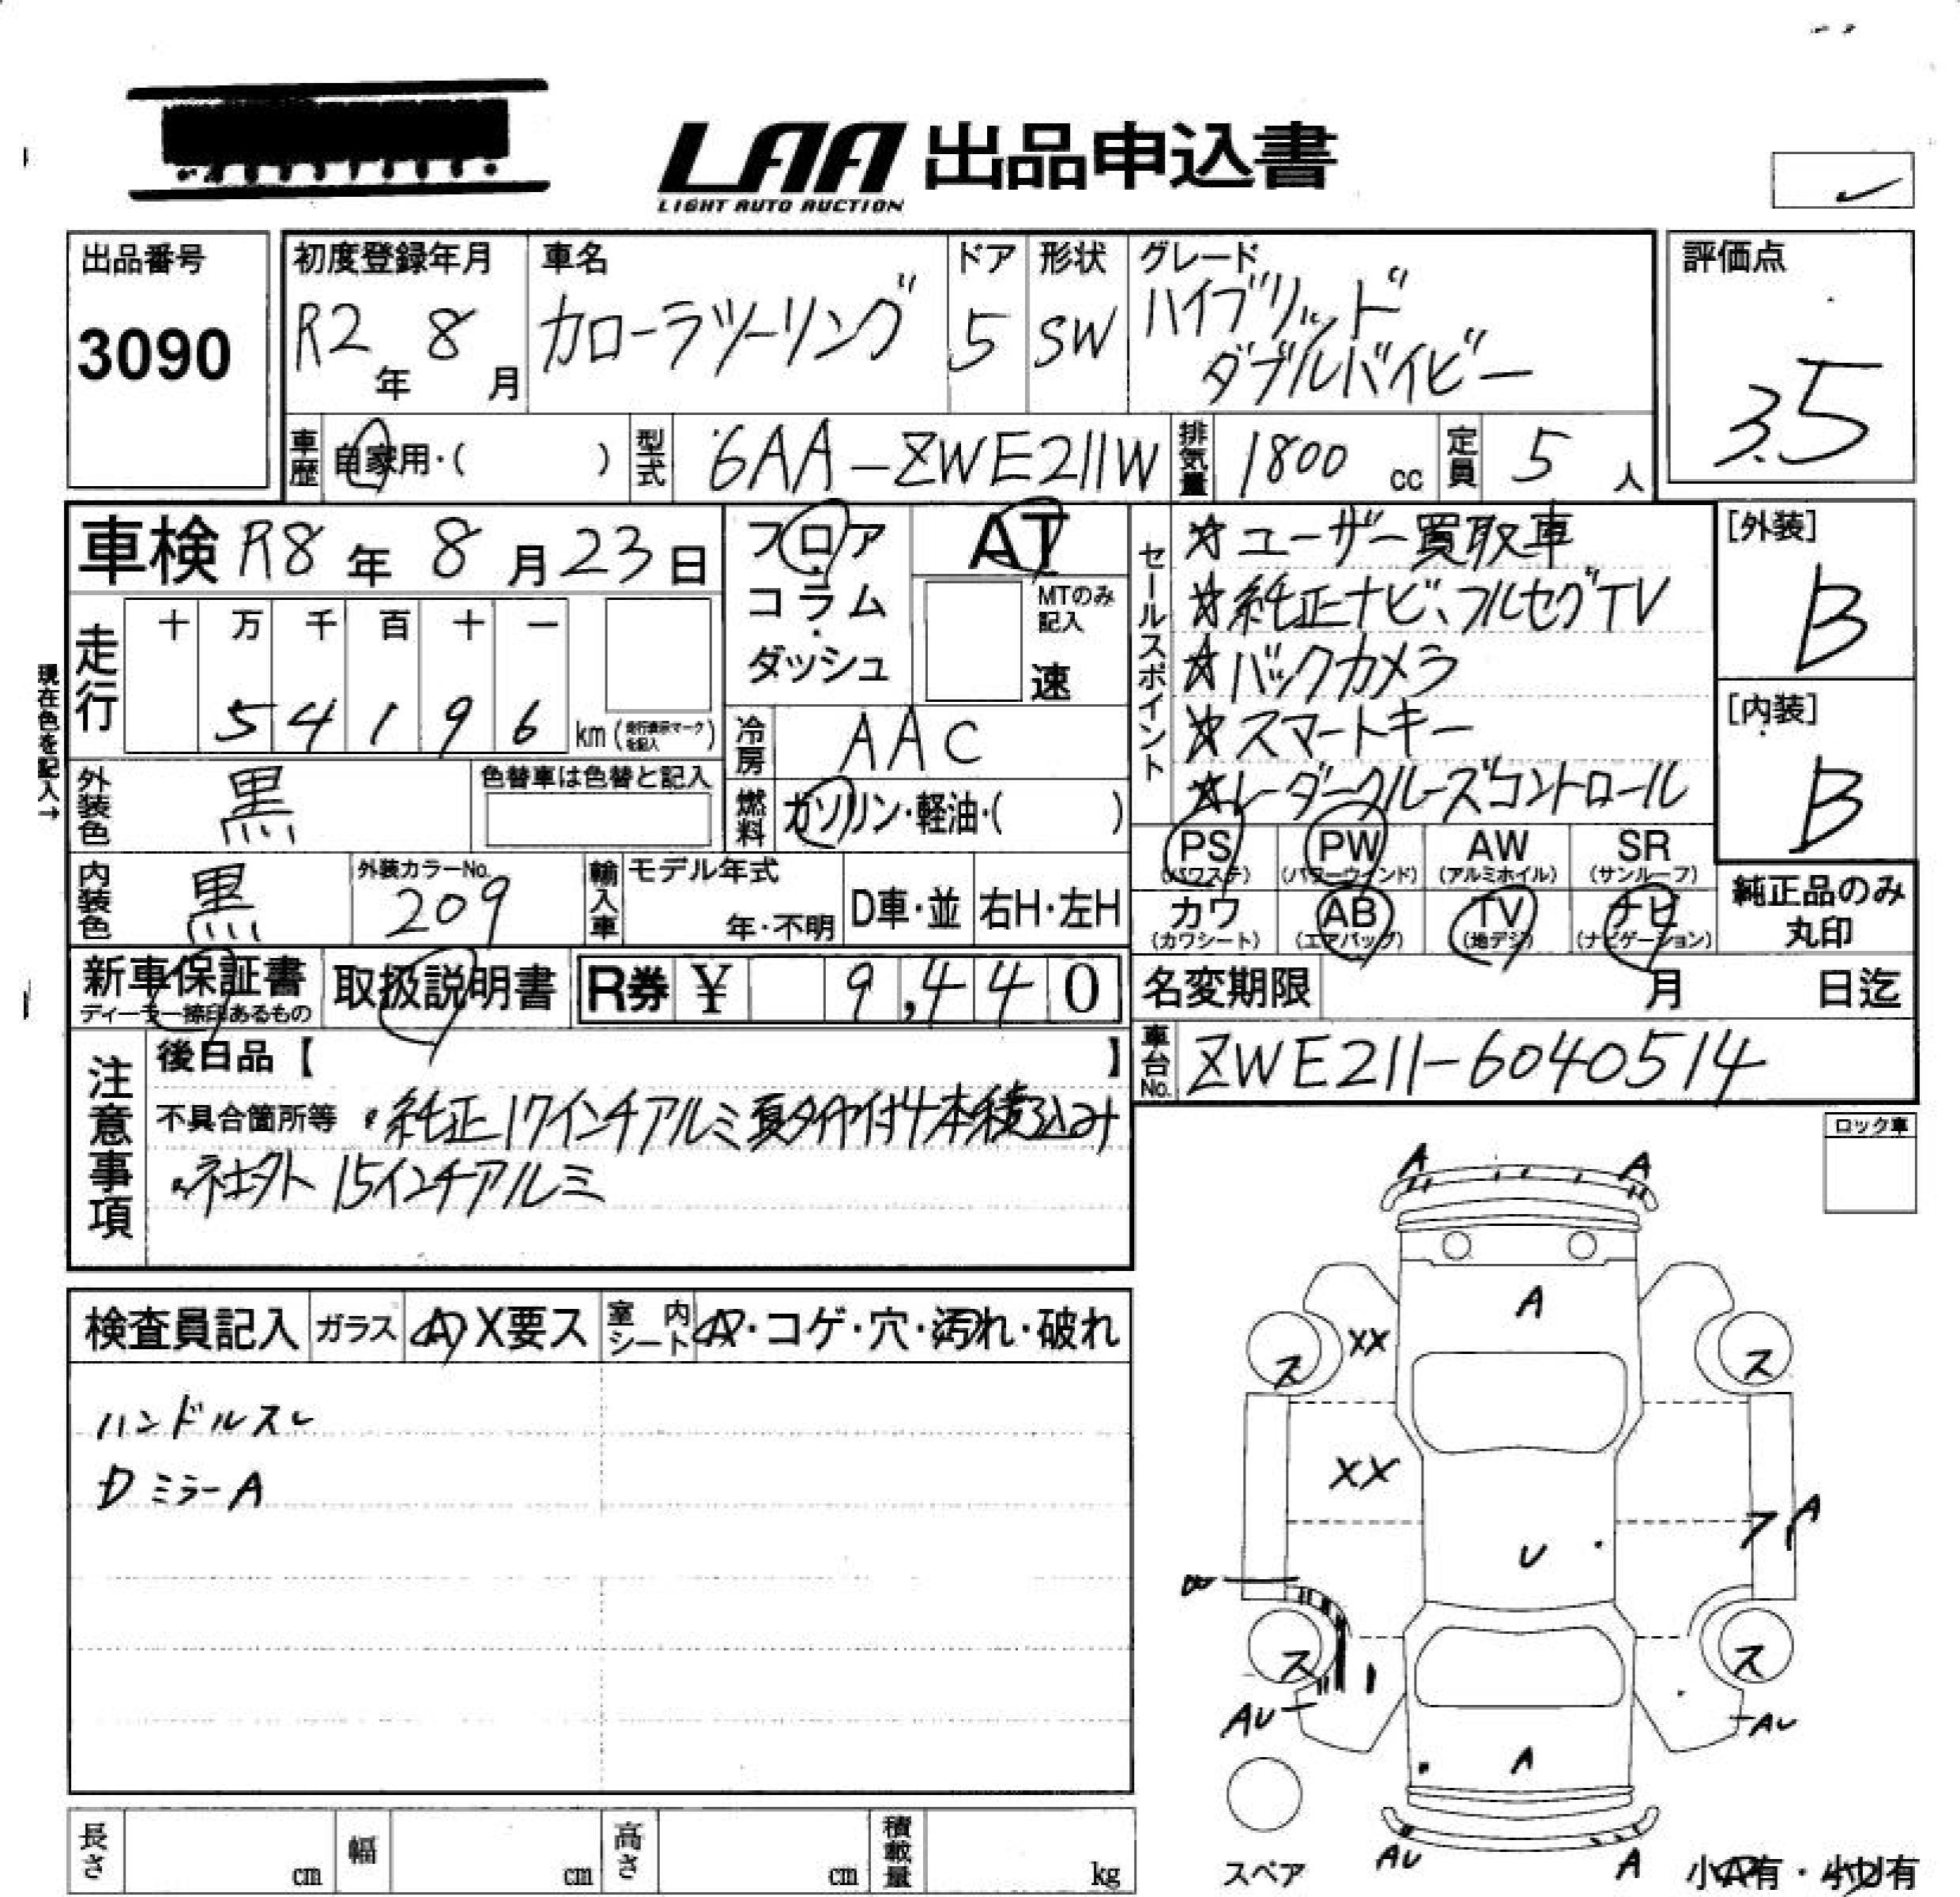 LAA 出品申込書
LIGHT AUTO AUCTION
出品番号
3090
初度登録年月
R2年 8月
車名
カローラツーリング
ドア
5
形状
SW
グレード
ハイブリッド
ダブルバイビー
評価点
3.5
車歴 自家用・( )
型式 6AA-ZWE211W
排気量 1800 cc
定員 5 人
車検 R8年 8月23日
フロア
・
コラム
・
ダッシュ
AT
MTのみ
記入
速
現在色を記入→
走行
十 万 千 百 十 一
5 4 1 9 6
km(走行表示マークを記入)
冷房 AAC
燃料 ガソリン・軽油・( )
外装色 黒
色替車は色替と記入
内装色 黒
外装カラーNo.
209
輸入車
モデル年式
年・不明
D車・並
右H・左H
セールスポイント
☆ユーザー買取車
☆純正ナビ、フルセグTV
☆バックカメラ
☆スマートキー
☆レーダークルーズコントロール
[外装]
B
[内装]
B
PS
(パワステ)
PW
(パワーウインド)
AW
(アルミホイル)
SR
(サンルーフ)
カワ
(カワシート)
AB
(エアバッグ)
TV
(地デジ)
ナビ
(ナビゲーション)
純正品のみ
丸印
新車保証書
ディーラー捺印あるもの
取扱説明書
R券 ¥ 9,440
名変期限 月 日迄
車台No. ZWE211-6040514
注意事項
後日品【 】
不具合箇所等 ・純正17インチアルミ夏タイヤ付4本積込み
・社外15インチアルミ
ロック車
検査員記入
ガラス
A X要ス
室内シート
A・コゲ・穴・汚れ・破れ
ハンドルスレ
Dミラー A
A A
A
XX
ス ス
XX
A
U
ス ス
AU AU
A
AU A
スペア
小A有・小U有
長さ cm
幅 cm
高さ cm
積載量 kg